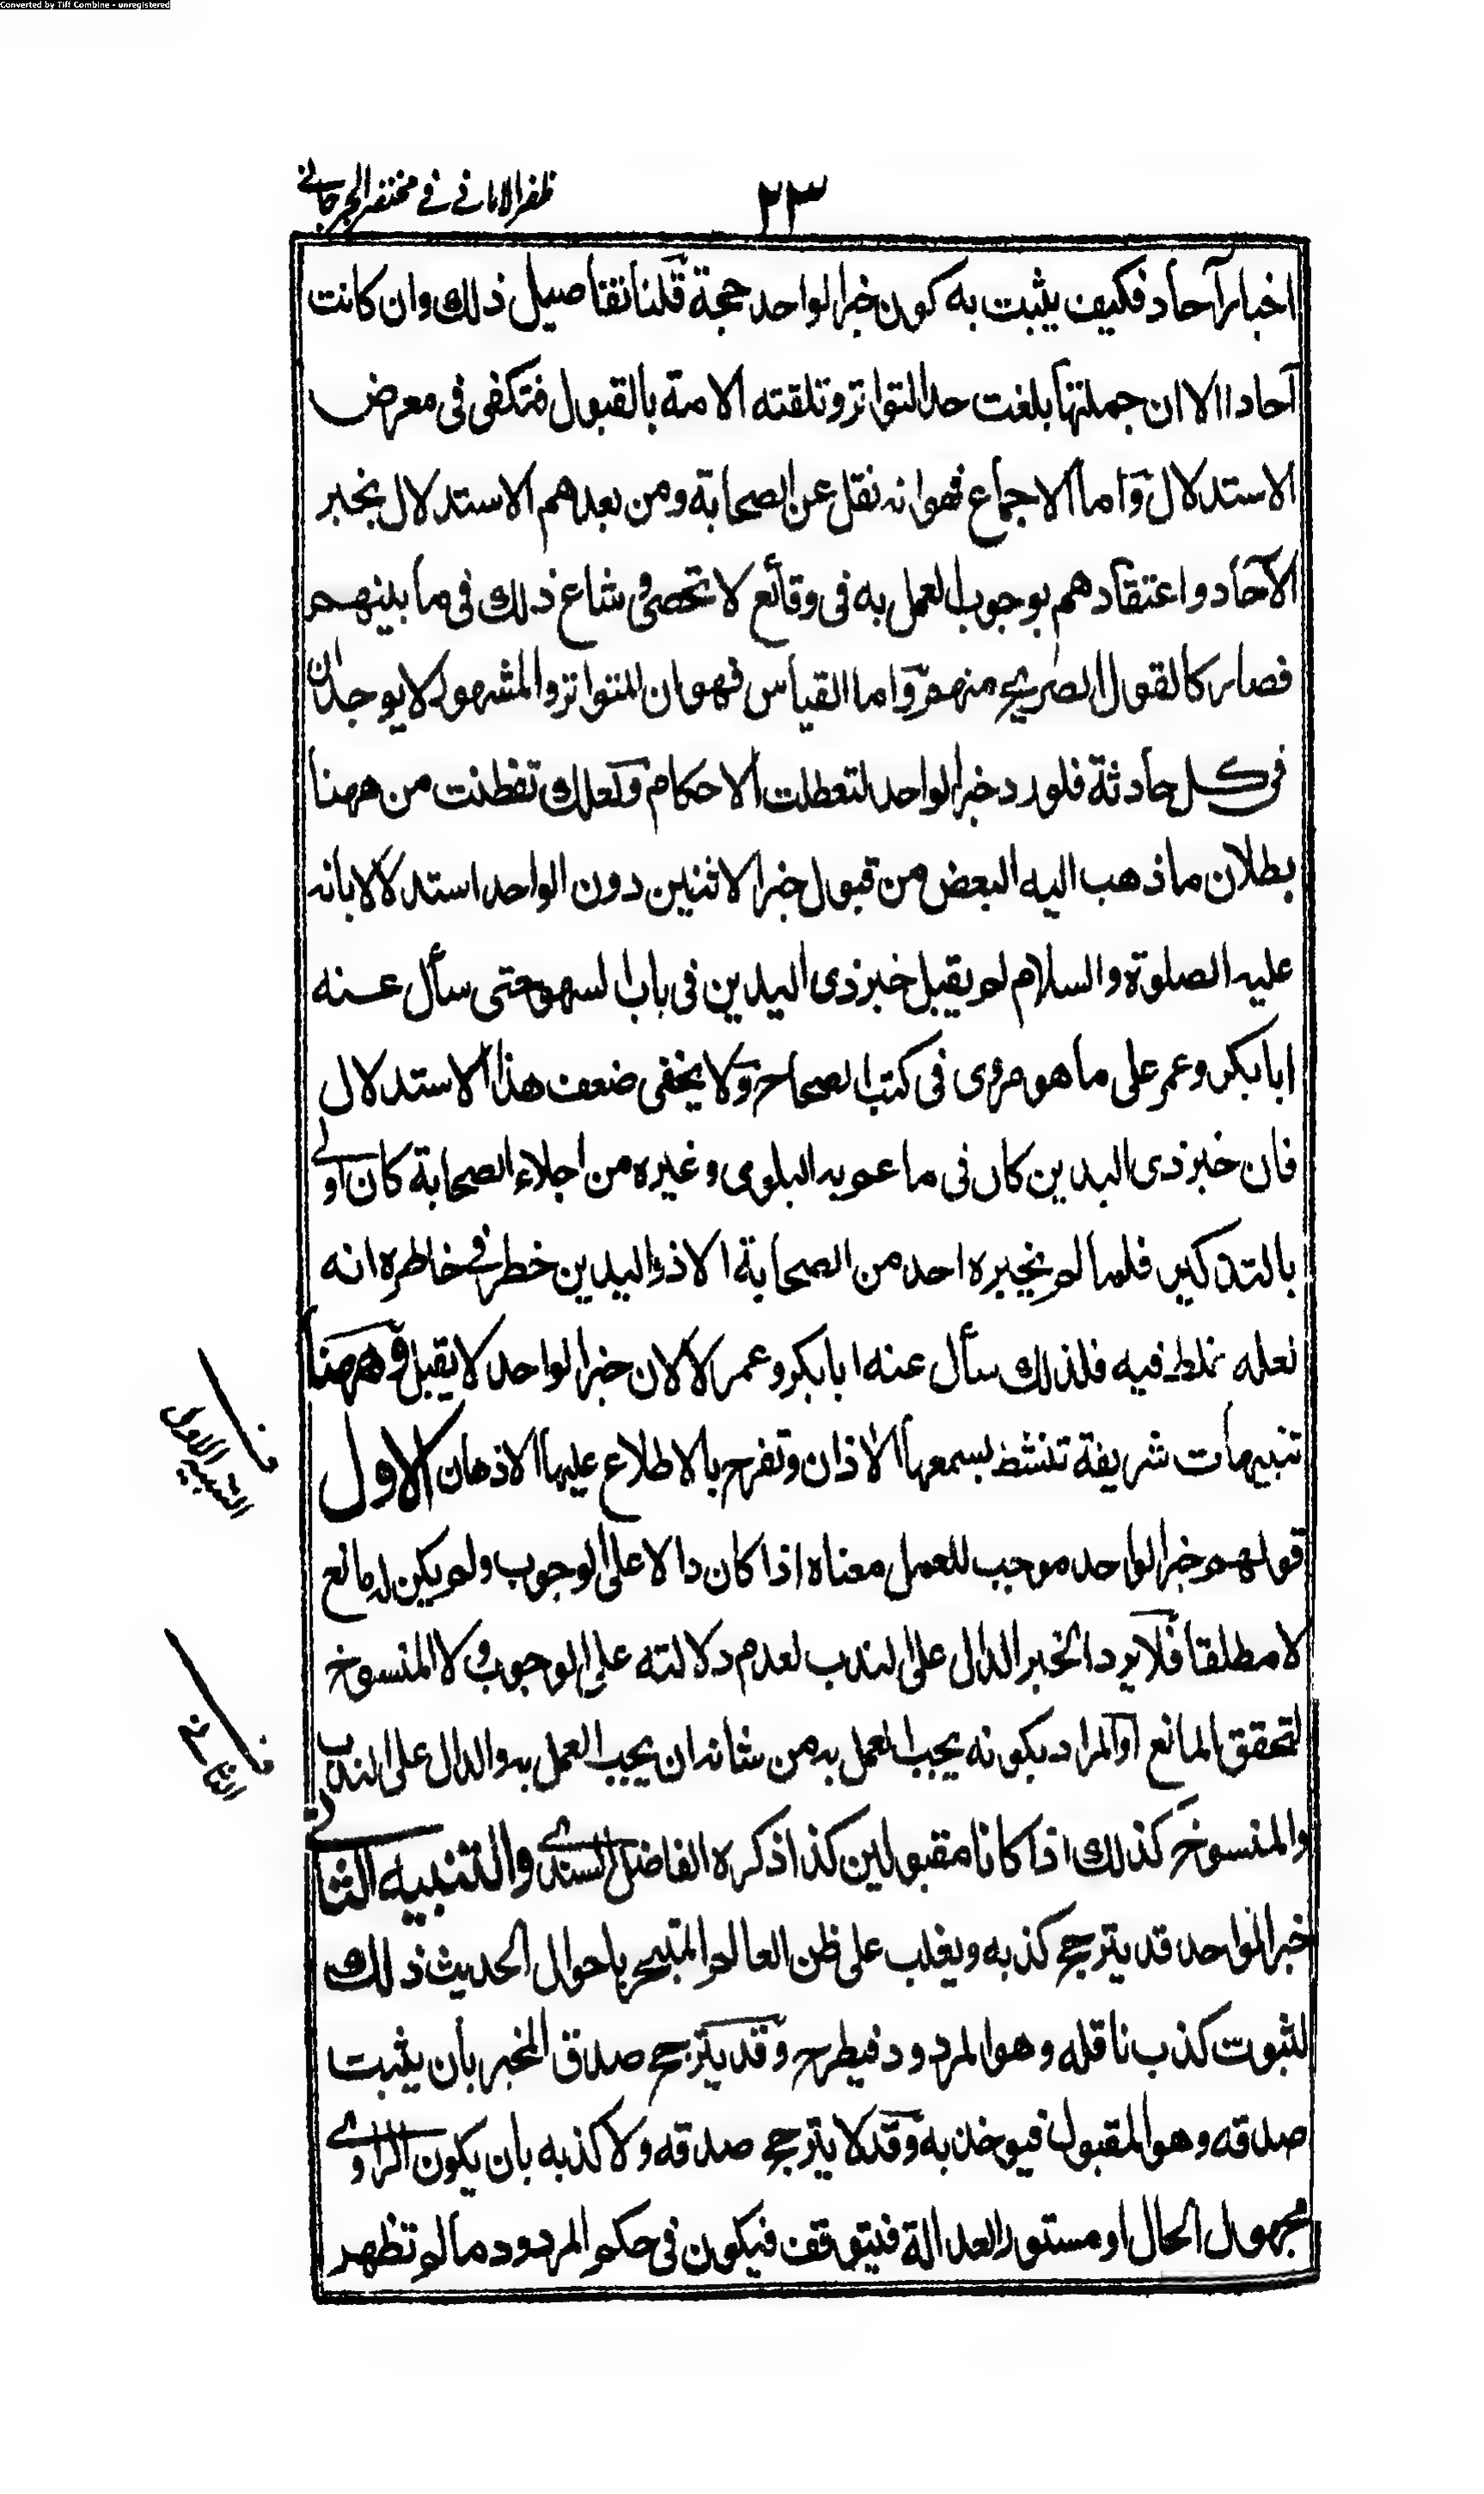 Converted by Tiff Combine - unregistered
٢٣
ظفر الامانی فی مختصر الجرجانی
اخبار آحاد فكيف يثبت به كون خبر الواحد حجة قلنا تفاصيل ذلك وان كانت
آحادا الا ان جملتها بلغت حد التواتر وتلقته الامة بالقبول فتكفى فى معرض
الاستدلال واما الاجماع فهو انه نقل عن الصحابة ومن بعدهم الاستدلال بخبر
الآحاد واعتقادهم بوجوب العمل به فى وقائع لا تحصى وشاع ذلك فى ما بينهم
فصار كالقول الصريح منهم واما القياس فهو ان المتواتر والمشهور لا يوجدان
فى كل حادثة فلو رد خبر الواحد لتعطلت الاحكام ولعلك تفطنت من ههنا
بطلان ما ذهب اليه البعض من قبول خبر الاثنين دون الواحد استدلالا بانه
عليه الصلوة والسلام لم يقبل خبر ذى اليدين فى باب السهو حتى سأل عنه
ابا بكر وعمر على ما هو مروى فى كتب الصحاح ولا يخفى ضعف هذا الاستدلال
فان خبر ذى اليدين كان فى ما عم به البلوى وغيره من اجلاء الصحابة كان اولى
بالتذكير فلما لم يخبره احد من الصحابة الا ذو اليدين خطر فى خاطره انه
لعله غلط فيه فلذلك سأل عنه ابا بكر وعمر لا لان خبر الواحد لا يقبل وههنا
تنبيهات شريفة تنشط بسمعها الآذان وتفرح بالاطلاع عليها الاذهان الاول
قولهم خبر الواحد موجب للعمل معناه اذا كان دالا على الوجوب ولم يكن له مانع
لا مطلقا فلا يرد الخبر الدال على الندب لعدم دلالته على الوجوب ولا المنسوخ
لتحقق المانع او المراد بكونه يجب العمل به من شانه ان يجب العمل به والدال على الندب
والمنسوخ كذلك اذا كانا مقبولين كذا ذكره الفاضل السندى والتنبيه الثانى
خبر الواحد قد يترجح كذبه ويغلب على ظن العالم المتبحر باحوال الحديث ذلك
لثبوت كذب ناقله وهو المردود فيطرح وقد يترجح صدق المخبر بأن يثبت
صدقه وهو المقبول فيوخذ به وقد لا يترجح صدقه ولا كذبه بأن يكون الراوى
مجهول الحال او مستور العدالة فيتوقف فيكون فى حكم المردود ما لم تظهر
ف
التنبيه الاول
ف
الثانی